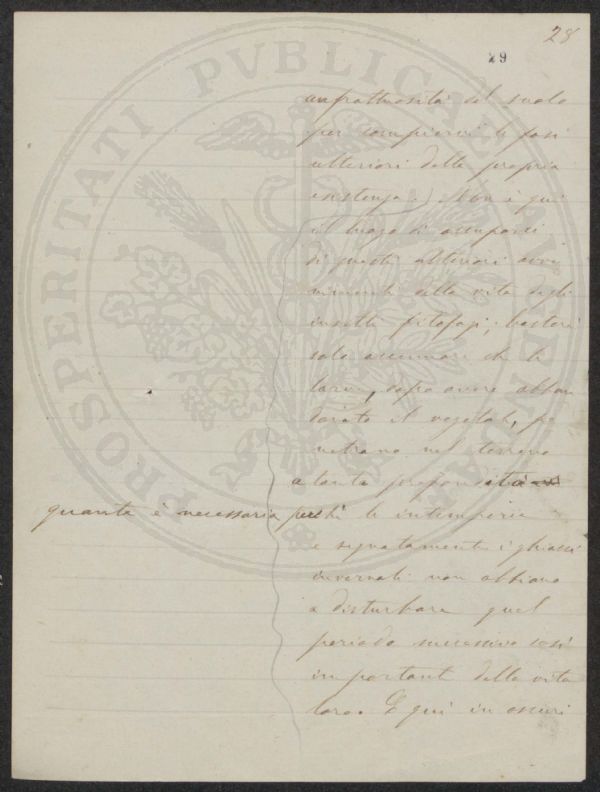 28
29
PROSPERITATI PVBLICAE AVGENDAE
anfrattuosità del suolo
per compiervi le fasi
ulteriori della propria
esistenza. Non è qui
il luogo di occuparci
di questi ulteriori avve
nimenti della vita degli
insetti fitofagi; basterà
solo accennare che le
larve, dopo avere abban
donato il vegetale, pe
netrano nel terreno
a tanta profondità
quanta è necessaria perchè le intemperie
e segnatamente i ghiacci
invernali non abbiano
a disturbare quel
periodo successivo così
important della vita
loro. E qui in oscuri